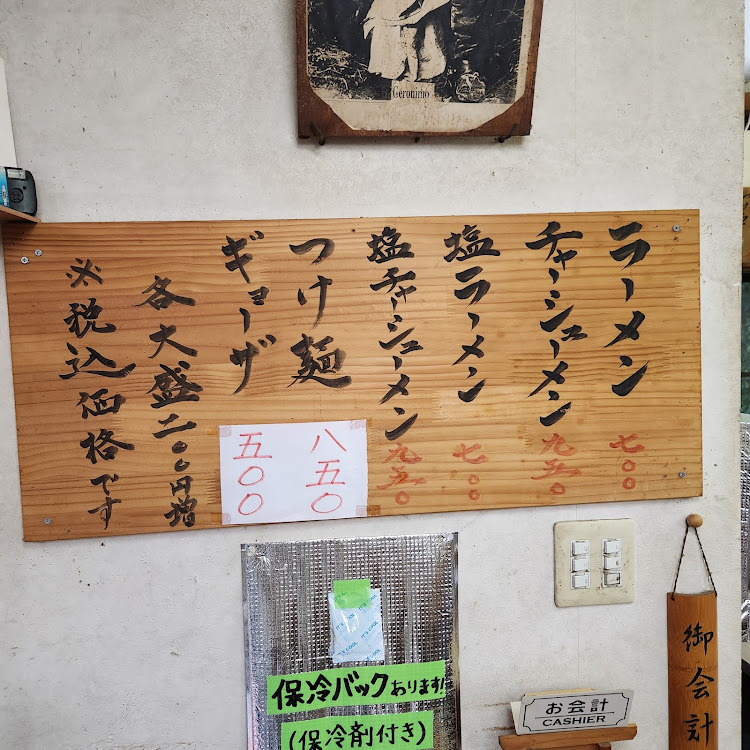 Geronimo
ラーメン 七〇〇
チャーシューメン 九五〇
塩ラーメン 七〇〇
塩チャーシューメン 九五〇
つけ麺 八五〇
ギョーザ 五〇〇
各大盛二〇〇円増
※税込価格です
IT'S COOL
保冷バックあります!
(保冷剤付き)
お会計
CASHIER
御会計